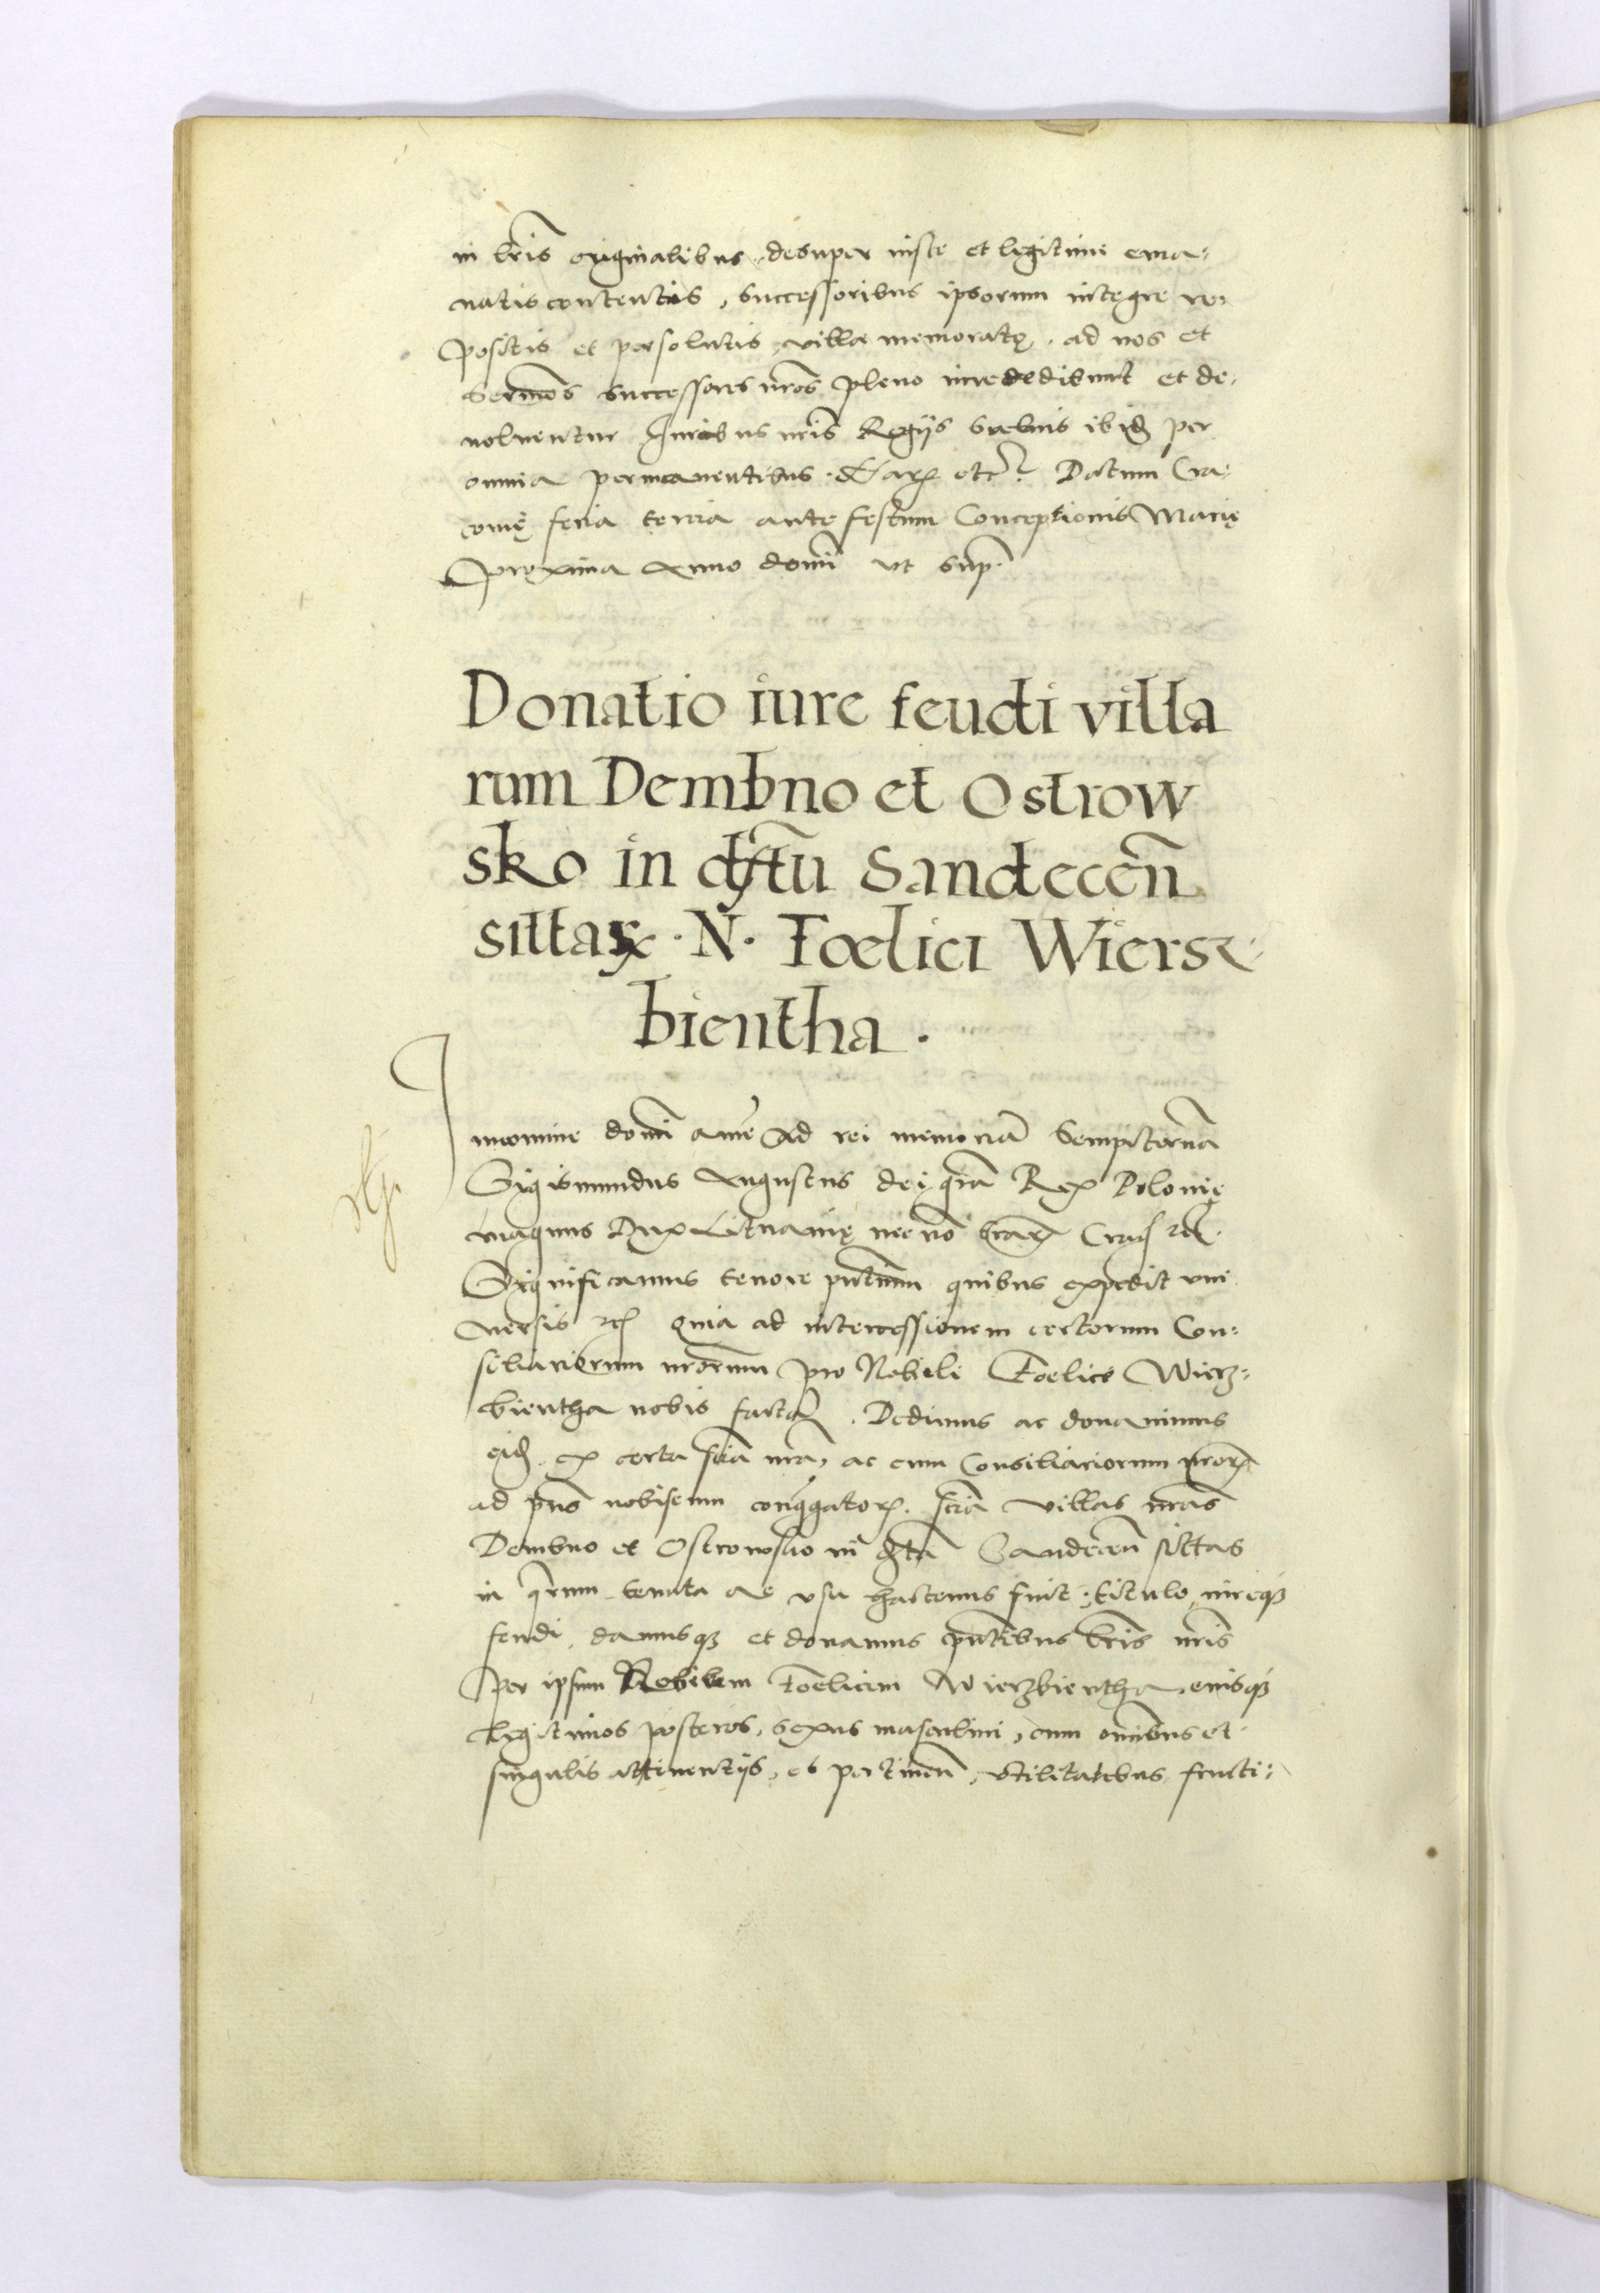 in lr̃is originalibus desuper iuste et legitime ema-
natis contentas, successoribus ipsorum integre re-
positis et persolutis, villae memoratę ad nos et
Sermõs successores nr̃os pleno iure dedibunt et de-
voluentur Iuribus nr̃is Regijs saluis ibid per
omnia permanentibus. Harꝝ etc̃. Datum Cra-
covię feria tercia ante festum Conceptionis Marię
proxima Anno domĩ vt sup.
Donatio iure feudi villa
rum Dembno et Ostrow
sko in dſtũ Sandecceñ
sittaꝝ · N · Foelici Wiersz-
bientha .
In nomine domĩ amẽ Ad rei memoriã Sempiternã
Sigismundus Augustus dei gr̃a Rex Polonię
magnus Dux Lituanię nec nõ trãꝝ Crac̃ etc.
Significamus tenore pñtium quibus expedit vni
versis etc̃ quia ad intercessionem certorum Con-
siliariorum nr̃orum pro Nobili Foelice Wierz-
bientha nobis factã. Dedimus ac donavimus
eid̃ ex certa sciã nr̃a, ac cum Consiliariorum nr̃orꝝ
ad pñs nobiscum congregatorꝝ sciã villas nr̃as
Dembno et Ostrowsko in dſtũ Sandeceñ sittas
in qr̃um tenuta ac vsu hactenus fuit; titulo iureqꝫ
feudi, damusqꝫ et donamus pñtibus lr̃is nr̃is
Per ipsum Nobilem Foelicem Wierzbientha, eiusqꝫ
legitimos posteros, sexus masculini, cum omnibus et
singulis attinentijs, et pertineñ, vtilitatibus fructi-